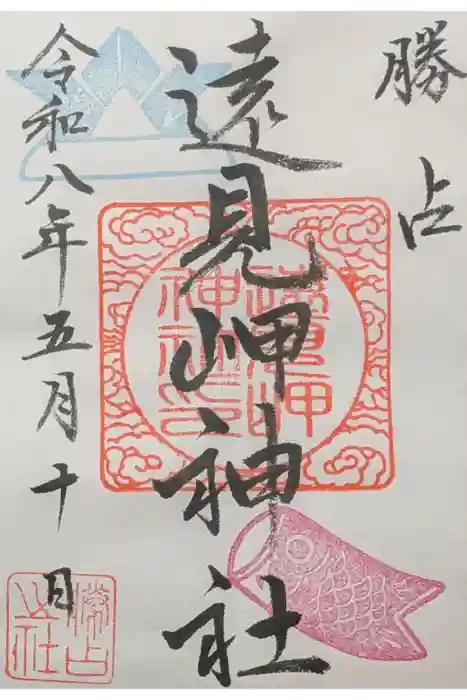 勝占
遠見岬神社
令和八年五月十日
遠見岬
神社之印
勝占
之社